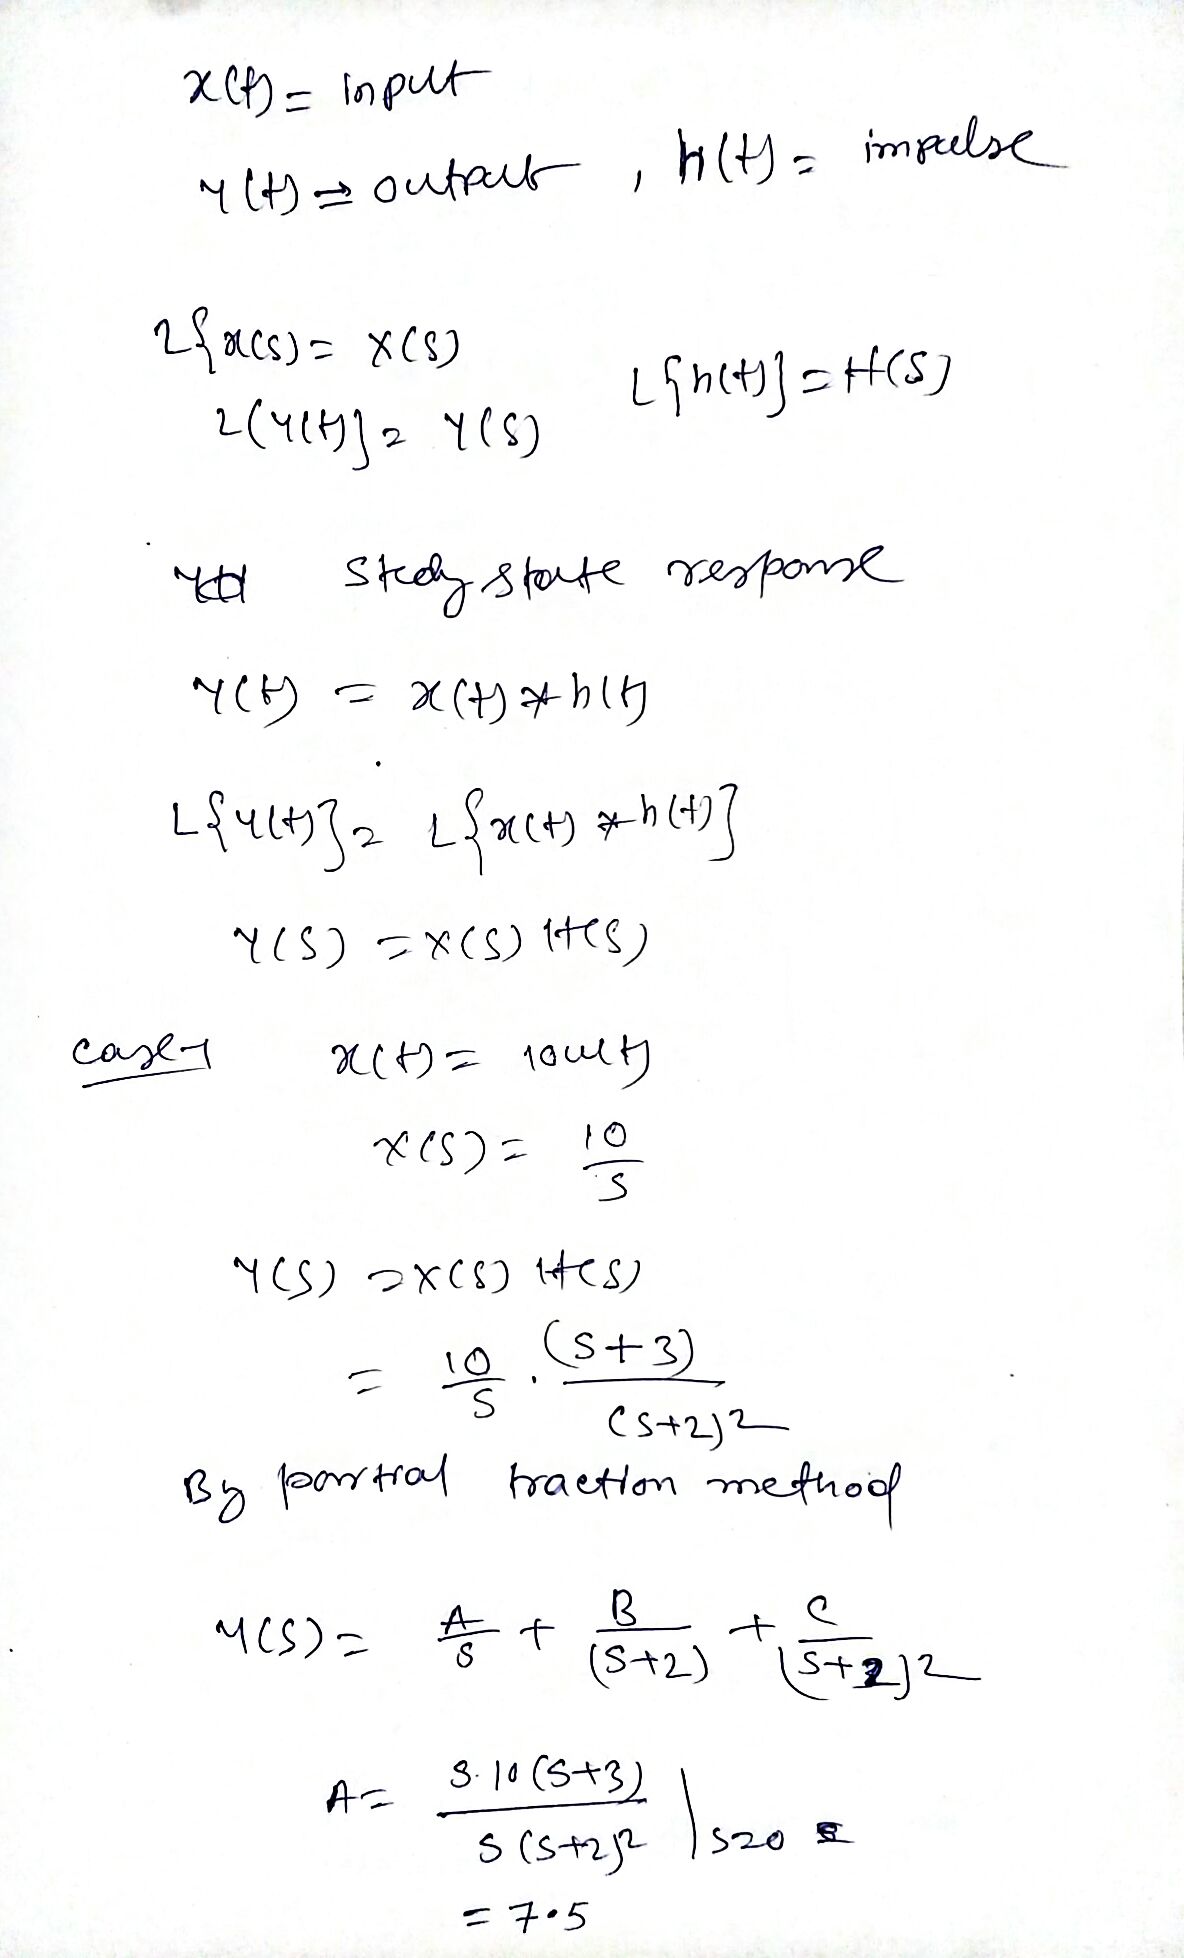 x(t) = input
y(t) = output , h(t) = impulse
L{x(s) = X(s)
L{h(t)} = H(s)
L{y(t)} = Y(s)
stedy state response
y(t) = x(t) * h(t)
L{y(t)} = L{x(t) * h(t)}
Y(s) = X(s) H(s)
case-1 x(t) = 10u(t)
X(s) = 10/s
Y(s) = X(s) H(s)
= 10/s . (s+3)/(s+2)^2
By partial fraction method
Y(s) = A/s + B/(s+2) + C/(s+2)^2
A = s.10(s+3)/s(s+2)^2 |s=0
= 7.5